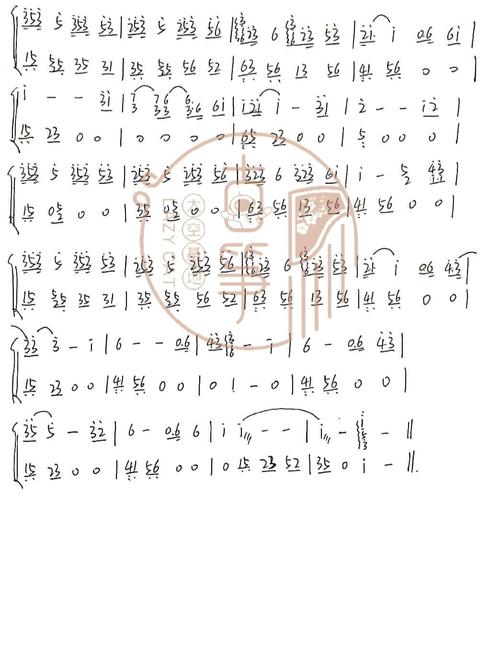 353 5 353 53 | 253 5 253 56 | 623 6 623 53 | 21 1 06 61 |
15 55 35 31 | 35 55 56 52 | 63 56 13 56 | 41 56 0 0 |
1 - - 31 | 1 21 1 - 31 | 2 - - 12 |
15 23 0 0 | 0 0 0 0 | 65 23 0 0 | 5 0 0 0 |
353 5 353 53 | 253 5 253 56 | 323 6 323 61 | 1 - 5 |
15 05 0 0 | 35 05 0 0 | 63 56 13 56 | 41 56 0 0 |
353 5 353 53 | 253 5 253 56 | 623 6 623 53 | 21 1 06 43 |
15 55 35 31 | 35 55 56 52 | 63 56 13 56 | 41 56 0 0 |
33 3 - 1 | 6 - - 06 | 43 - 1 | 6 - 06 43 |
15 23 0 0 | 41 56 0 0 | 0 1 - 0 | 41 56 0 0 |
35 5 - 32 | 6 - 06 6 | 1 1 - - | 1 - - ||
15 23 0 0 | 41 56 0 0 | 0 15 23 52 | 35 0 1 - ||
LAZY CAT